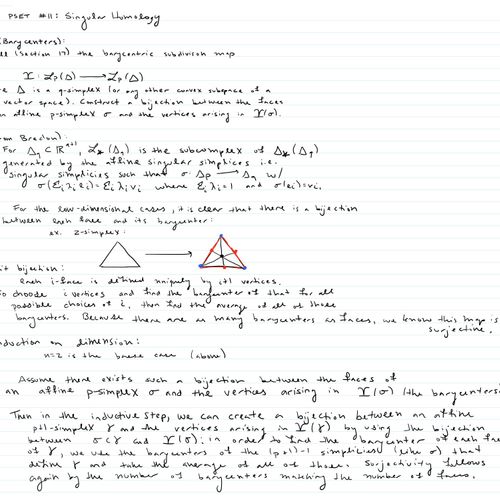 PSET #11: Singular Homology
(Barycenters):
(Section 17) the barycentric subdivision map
ϒ: 𝓛p(Δ) → 𝓛p(Δ)
Δ is a q-simplex (or any other convex subspace of a
vector space). Construct a bijection between the faces
an affine p-simplex σ and the vertices arising in ϒ(σ).
Bredon):
For Δq ⊂ ℝⁿ⁺¹, 𝓛*(Δq) is the subcomplex of Δ*(Δq)
generated by the affine singular simplices i.e.
singular simplicies such that σ: Δp → Δq w/
σ(Σiλiei)=Σiλivi where Σiλi=1 and σ(ei)=vi.
For the low-dimensional cases, it is clear that there is a bijection
between each face and its barycenter:
ex. 2-simplex:
bijection:
Each i-face is defined uniquely by i+1 vertices.
choose i vertices and find the barycenter of that for all
possible choices of i, then find the average of all of those
barycenters. Because there are as many barycenters as faces, we know this map is
surjective.
induction on dimension:
n=2 is the base case (above)
Assume there exists such a bijection between the faces of
an affine p-simplex σ and the vertices arising in ϒ(σ) (the barycenters
Then in the inductive step, we can create a bijection between an affine
p+1-simplex γ and the vertices arising in ϒ(γ) by using the bijection
between σ⊂γ and ϒ(σ): in order to find the barycenter of each face
of γ, we use the barycenters of the (p+1)-1 simplicies (like σ) that
define γ and take the average of all of those. Surjectivity follows
again by the number of barycenters matching the number of faces.